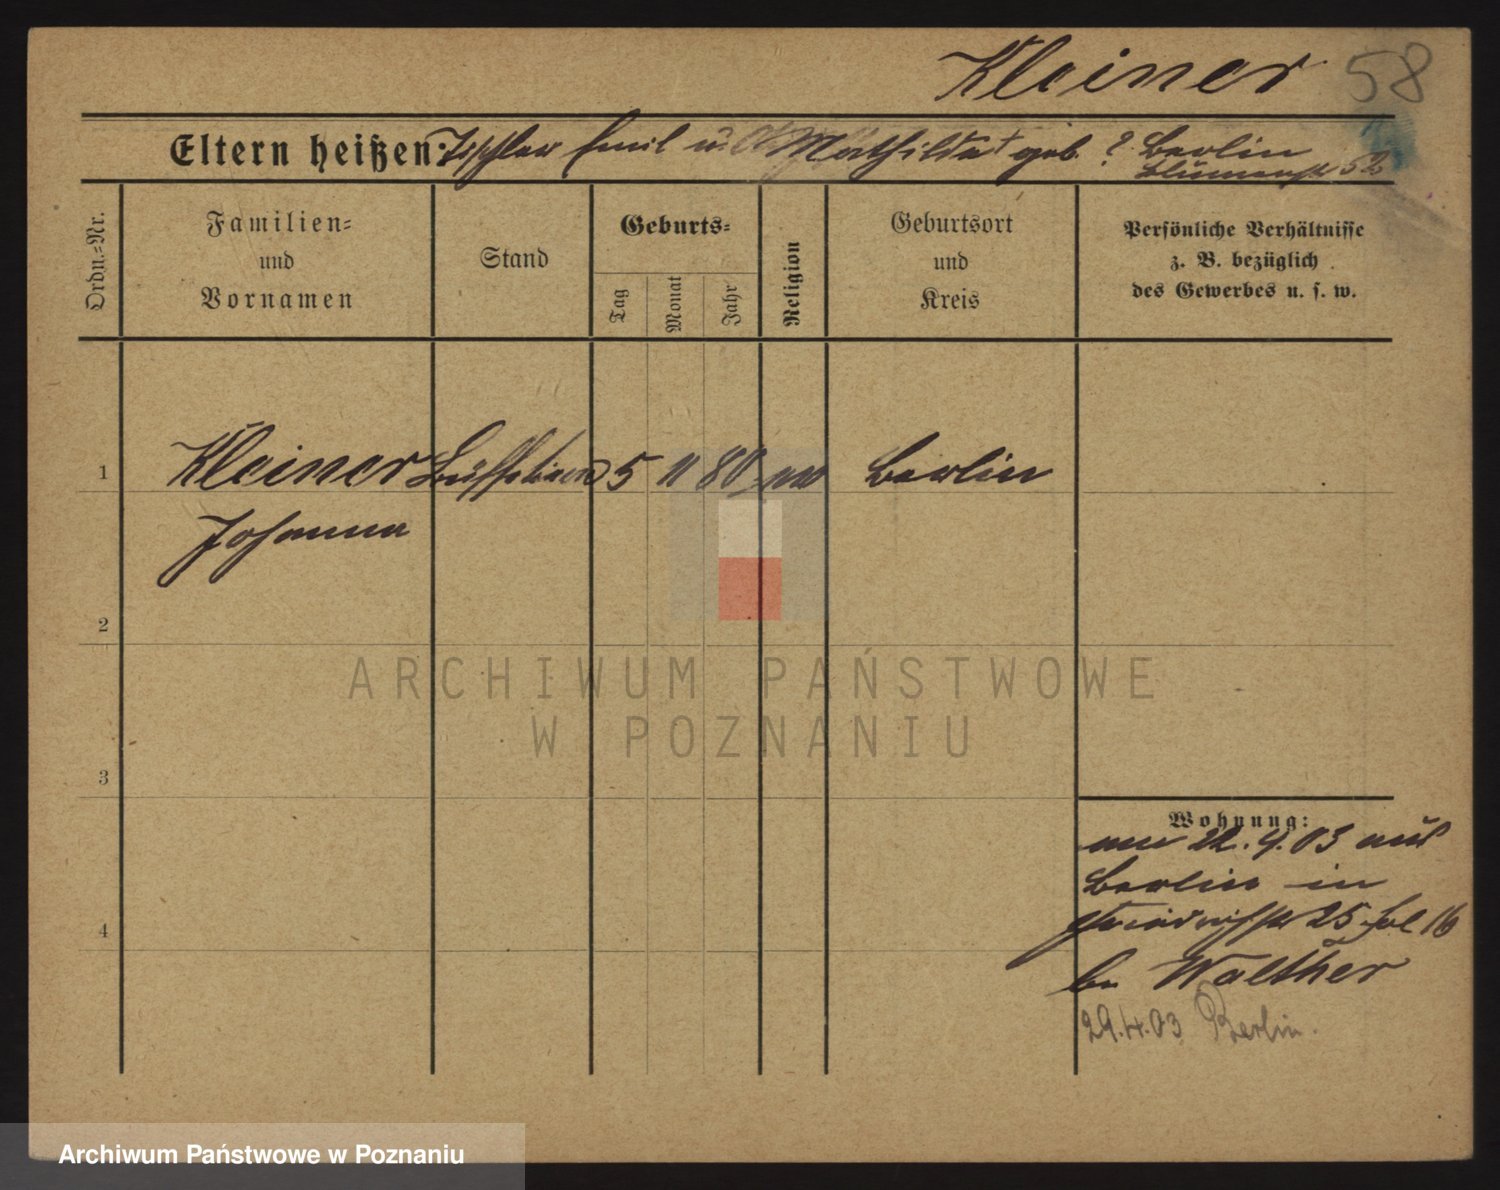 Kleiner 58
Eltern heißen: Tischler Emil u. Mathilda † geb. ? Berlin
Blumenstr 52
Ordn.=Nr.
Familien=
und
Vornamen
Stand
Geburts=
Tag
Monat
Jahr
Religion
Geburtsort
und
Kreis
Persönliche Verhältnisse
z. B. bezüglich
des Gewerbes u. s. w.
1 Kleiner 5 11 80 Berlin
Johanna
2
ARCHIWUM PAŃSTWOWE
W POZNANIU
3
Wohnung:
22.4.03 aus
Berlin in
25
Walther
4
29.4.03 Berlin.
Archiwum Państwowe w Poznaniu